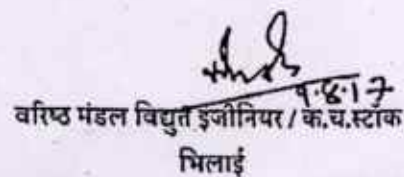 9.8.17
वरिष्ठ मंडल विद्युत इंजीनियर / क.च.स्टॉक
भिलाई